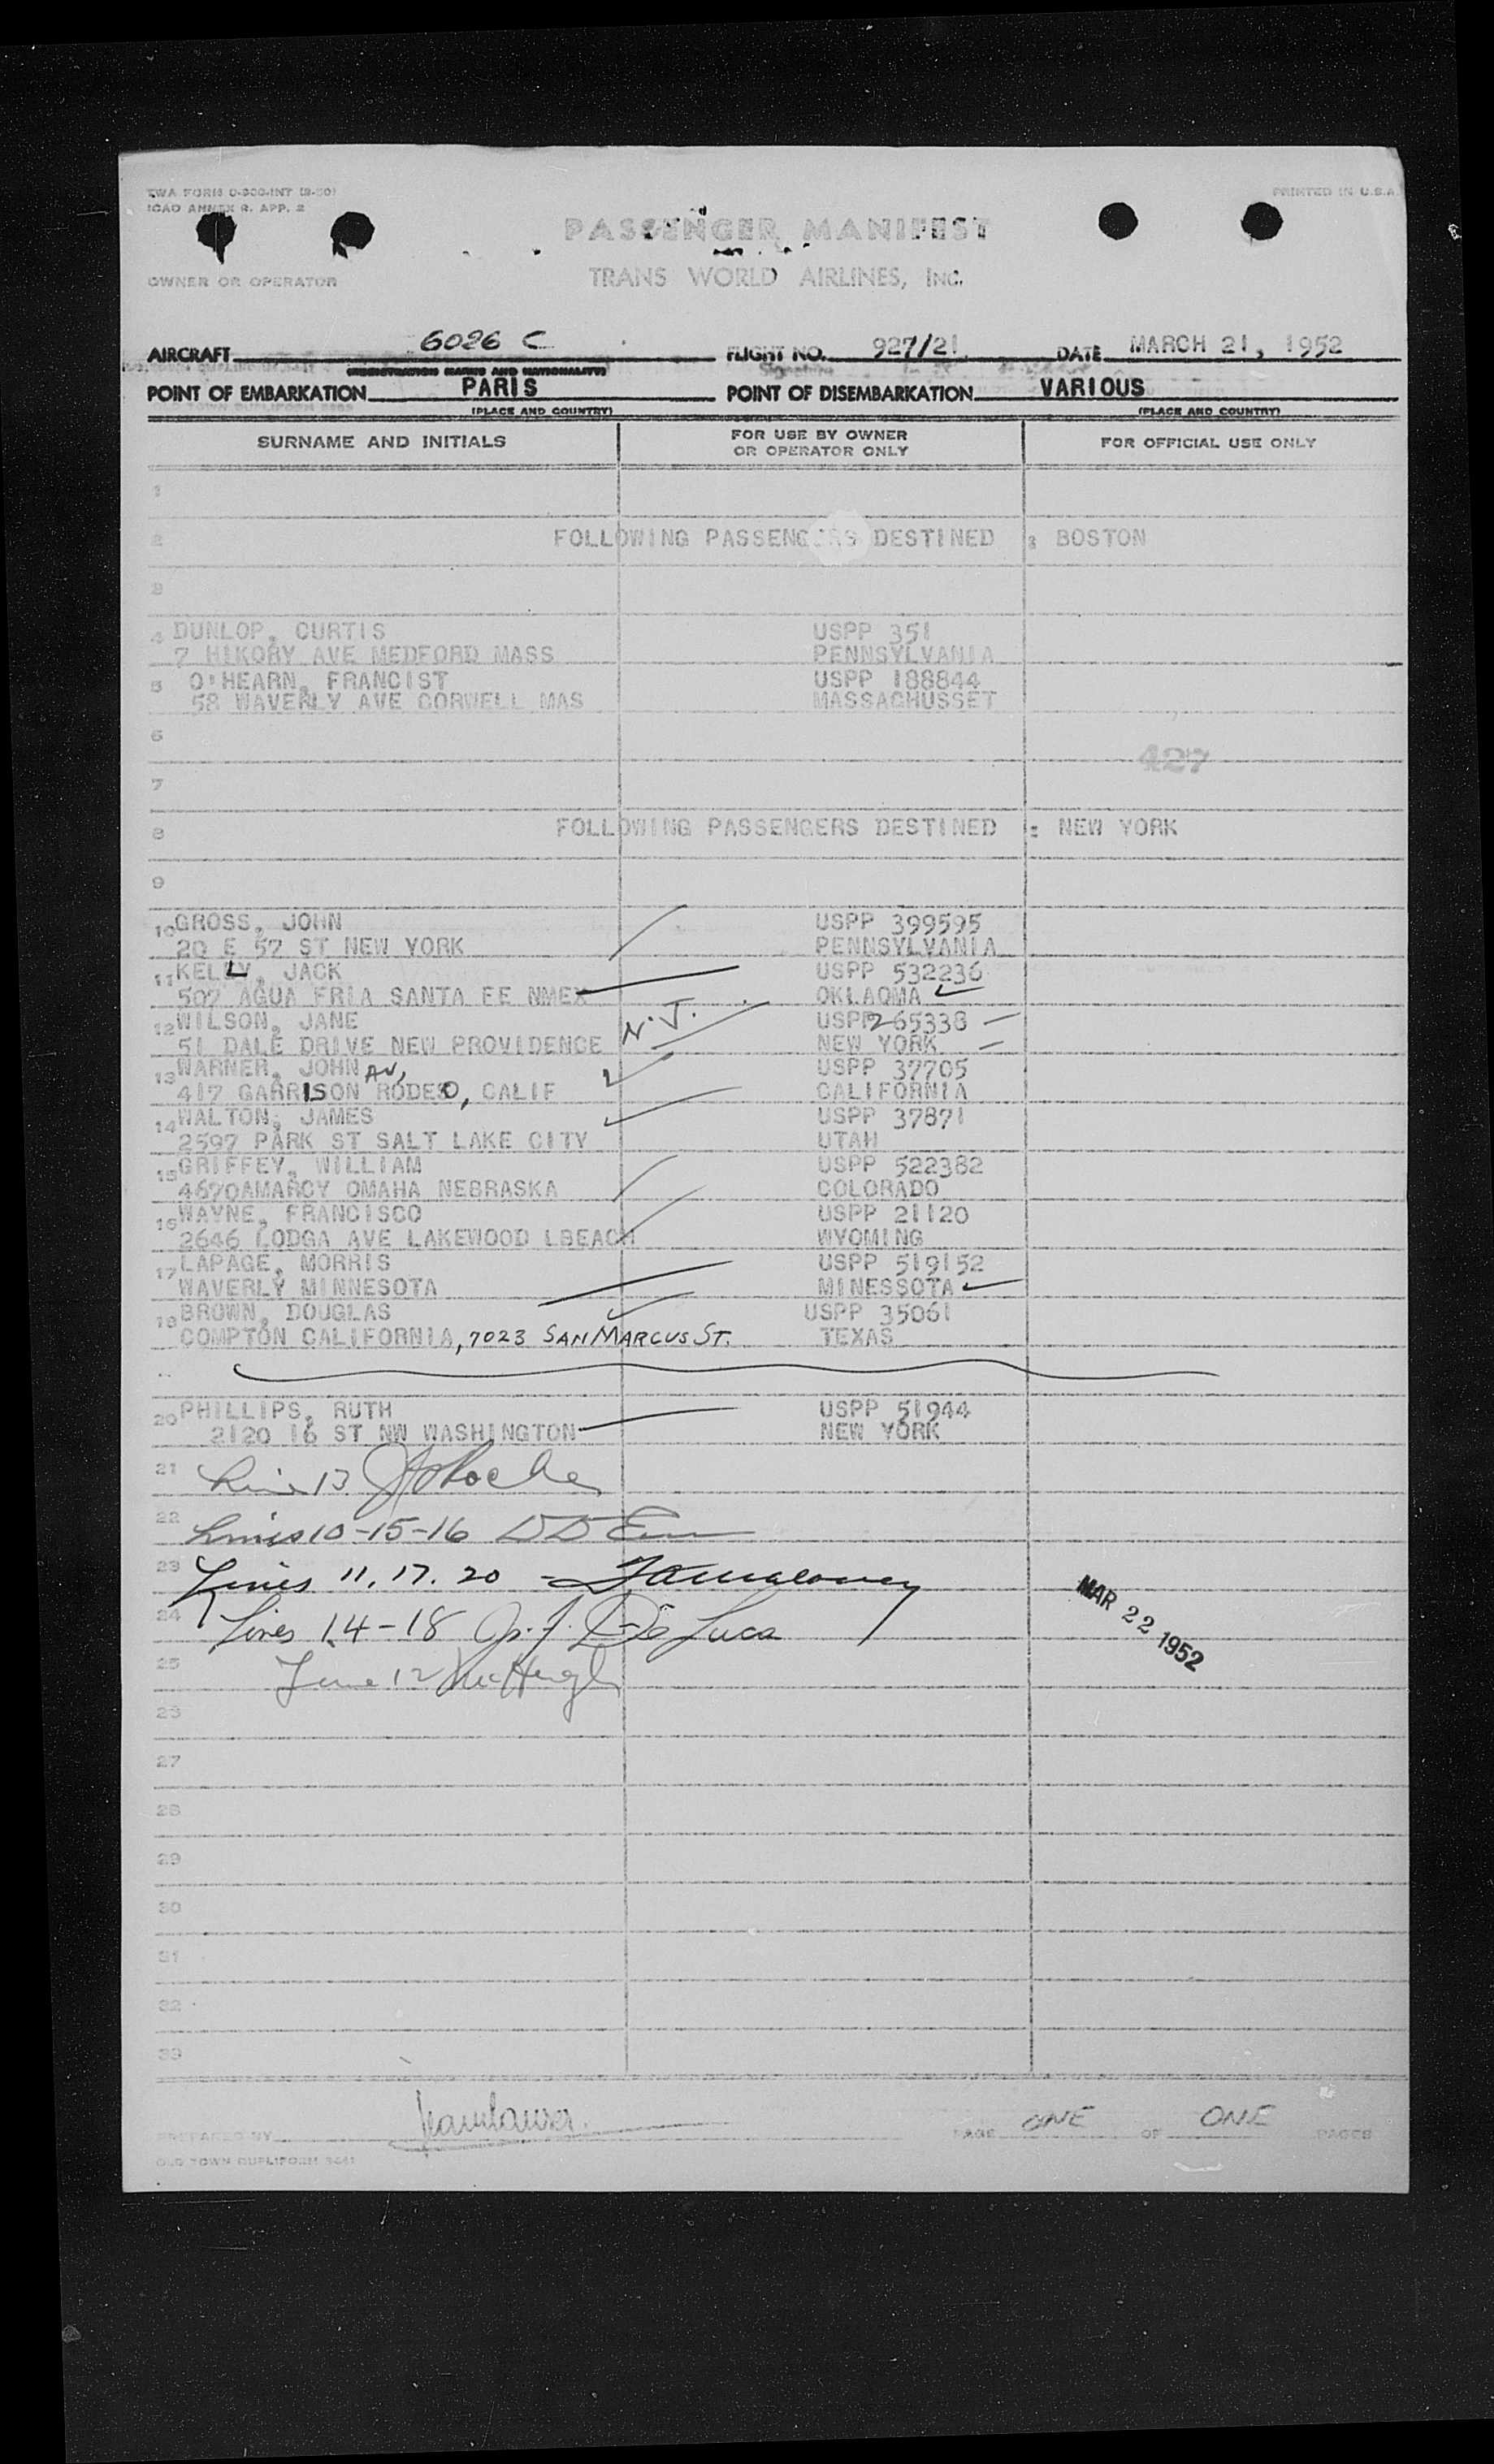 TWA FORM O-300-INT (9-50)
ICAO ANNEX 9. APP. 2
PRINTED IN U.S.A.
PASSENGER MANIFEST
OWNER OR OPERATOR
TRANS WORLD AIRLINES, INC.
AIRCRAFT 6026 C FLIGHT NO. 927/21 DATE MARCH 21, 1952
(REGISTRATION MARKS AND NATIONALITY)
POINT OF EMBARKATION PARIS POINT OF DISEMBARKATION VARIOUS
(PLACE AND COUNTRY) (PLACE AND COUNTRY)
SURNAME AND INITIALS FOR USE BY OWNER OR OPERATOR ONLY FOR OFFICIAL USE ONLY
1
2 FOLLOWING PASSENGERS DESTINED : BOSTON
3
4 DUNLOP, CURTIS USPP 351
7 HIKORY AVE MEDFORD MASS PENNSYLVANIA
5 O'HEARN, FRANCIST USPP 188844
58 WAVERLY AVE CORWELL MAS MASSACHUSSET
6
427
7
8 FOLLOWING PASSENGERS DESTINED : NEW YORK
9
10 GROSS, JOHN USPP 399595
20 E 57 ST NEW YORK PENNSYLVANIA
11 KELLY, JACK USPP 532236
507 AGUA FRIA SANTA FE NMEX OKLAOMA
12 WILSON, JANE USPP 265338
51 DALE DRIVE NEW PROVIDENCE N.J. NEW YORK
13 WARNER, JOHN USPP 37705
417 GARRISON AV, RODEO, CALIF CALIFORNIA
14 WALTON, JAMES USPP 37871
2597 PARK ST SALT LAKE CITY UTAH
15 GRIFFEY, WILLIAM USPP 522382
4670AMARCY OMAHA NEBRASKA COLORADO
16 WAYNE, FRANCISCO USPP 21120
2646 LODGA AVE LAKEWOOD LBEACH WYOMING
17 LAPAGE, MORRIS USPP 519152
WAVERLY MINNESOTA MINESSOTA
18 BROWN, DOUGLAS USPP 35061
COMPTON CALIFORNIA, 7023 SAN MARCUS ST. TEXAS
20 PHILLIPS, RUTH USPP 51944
2120 16 ST NW WASHINGTON NEW YORK
21 Line 13
22 Lines 10-15-16
23 Lines 11. 17. 20 -
24 Lines 14-18 De Luca
MAR 22 1952
25 Line 12 McHugh
26
27
28
29
30
31
32
33
PREPARED BY PAGE ONE OF ONE PAGES
OLD TOWN DUPLIFORM